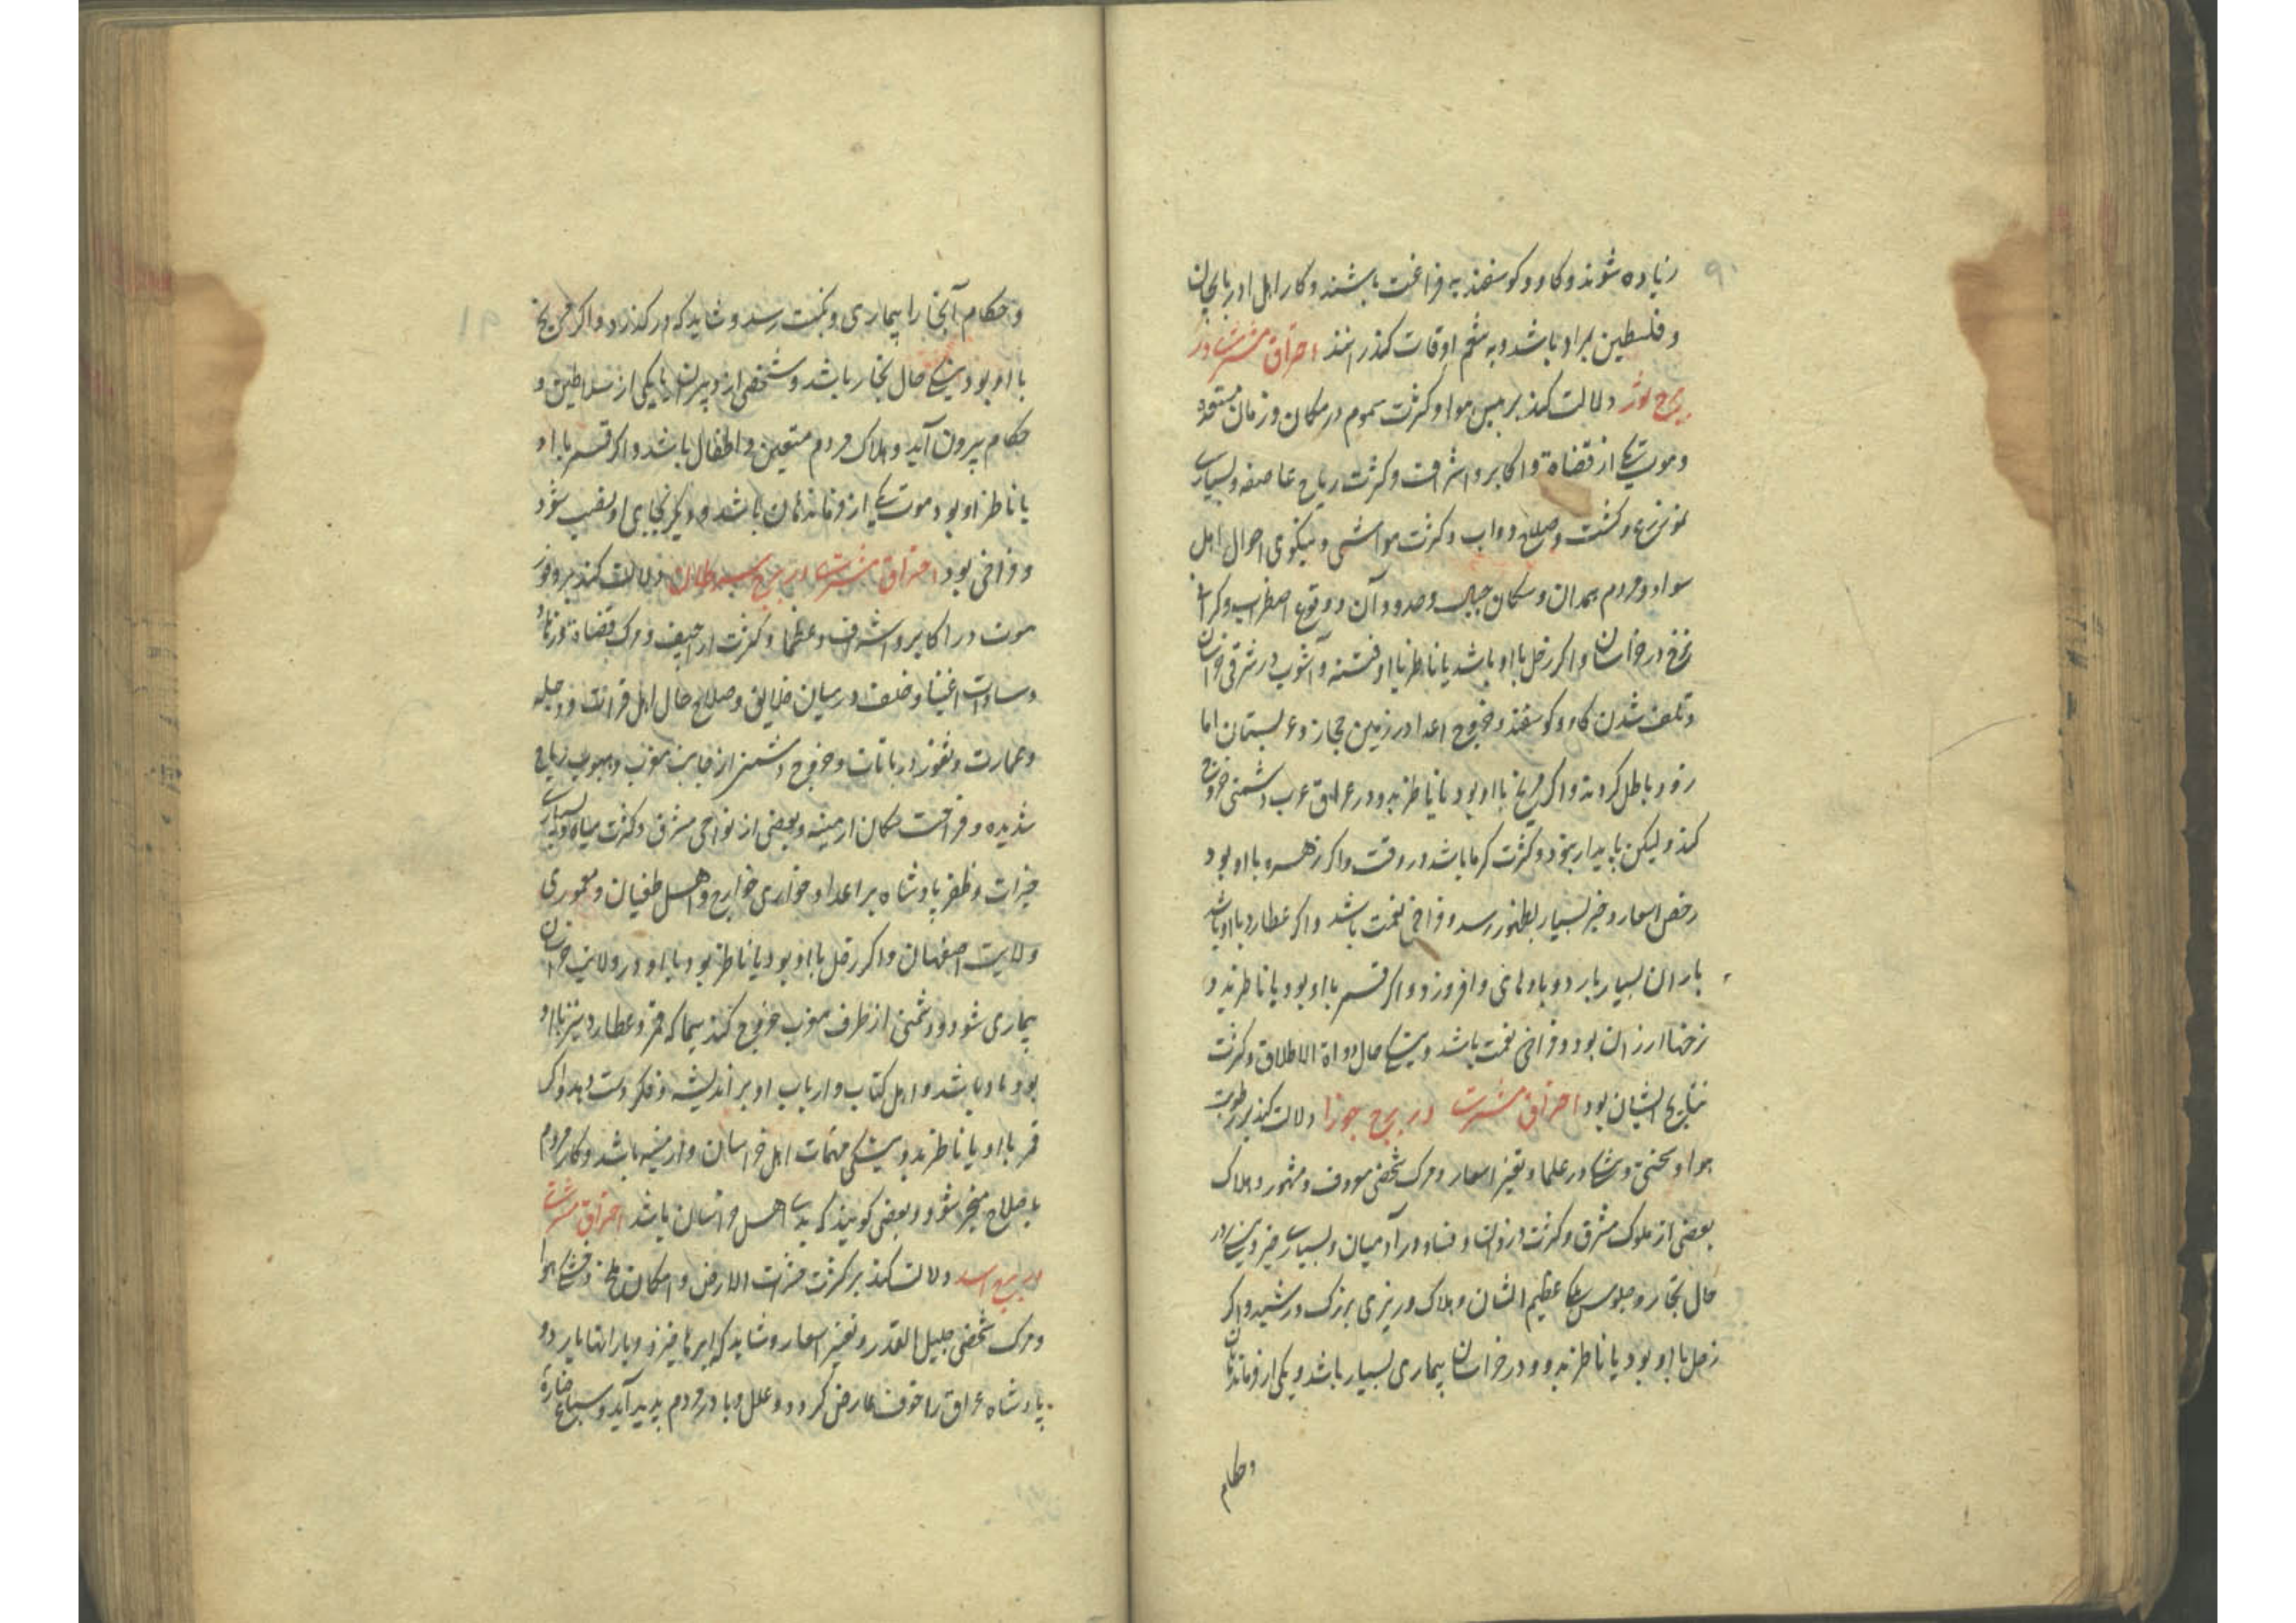 ۹۰
زیاده شوند و کاو و کوسفند به فراغت باشند و کار اهل ادربایجان
و فلسطین بمراد باشد و به تنعم اوقات کذرانند احراق مشتری در
برج ثور دلالت کند بر یبس هوا و کثرت سموم در مکان و زمان مستعده
و موت یکی از قضاة و اکابر و اشراف و کثرت ریاح عاصفه و بسیاری
زرع و کشت و صلاح دواب و کثرت مواشی و نیکوی احوال اهل
سواد و مردم همدان و سکان جبال و حدود آن و وقوع اضطراب و کرانی
نرخ در خراسان و اکر زحل با او باشد یا ناظر با او فتنه و آشوب در شرقی خراسان
و تلف شدن کاو و کوسفند و خروج اعدا در زمین حجاز و عربستان اما
زود باطل کردند و اکر مریخ با او بود یا ناظر بدو در عراق عرب دشمنی خروج
کند و لیکن پایدار نبود و کثرت کرما باشد در وقت و اکر زهره با او بود
رخص اسعار و خیر بسیار بظهور رسد و فراخی نعمت باشد و اکر عطارد با او باشد
باران بسیار بارد و بادهای وافر وزد و اکر قمر با او بود یا ناظر بدو
نرخها ارزان بود و فراخی نعمت باشد و نیکی حال دواة الاطلاق و کثرت
نتایج ایشان بود احراق مشتری در برج جوزا دلالت کند بر رطوبت
هوا و سختی و تنکی در علما و تغیر اسعار و مرک شخصی معروف و مشهور و هلاک
بعضی از ملوک مشرق و کثرت دزدان و فساد در آدمیان و بسیاری خیر و نیکی در
حال تجار و جلوس ملکی عظیم الشان و هلاک وزیری بزرک و رشید و اکر
زحل با او بود یا ناظر بدو و در خراسان بیماری بسیار باشد و یکی از فرماندهان
و حکام
۹۱
و حکام آنجا را بیماری و نکبت رسد و شاید که در کذرد و اکر مریخ
با او بود نیکی حال تجار باشد و شخصی از دبیران یا یکی از سلاطین و
حکام بیرون آید و هلاک مردم متعین و اطفال باشد و اکر قمر با او
یا ناظر او بود موت یکی از فرماندهان باشد و دیکر بجای او نصب شود
و فراخی بود احراق مشتری در برج سرطان دلالت کند بر وفور
موت در اکابر و اشراف و عظما و کثرت اراجیف و مرک قضاة و زنان
و سادات اغنیا و خلف در میان خلایق و صلاح حال اهل فرات و دجله
و عمارت و ثغور و رباتات و خروج دشمن از جانب مغرب و هبوب ریاح
شدیده و فراغت سکان ارمینه و بعضی از نواحی مشرق و کثرت میاه و بسیاری
خیرات و ظفر پادشاه بر اعدا و خواری خوارج و اهل طغیان و معموری
ولایت اصفهان و اکر زحل با او بود یا ناظر بود با او در ولایت خراسان
بیماری شود و دشمنی از طرف مغرب خروج کند سیما که قمر و عطارد نیز با او
بود و وبا باشد و اهل کتاب و ارباب او بر اندیشه و فکر دست دهد و اکر
قمر با او یا ناظر بدو نیکی مهمات اهل خراسان و ارمنیه باشد و کار مردم
بصلاح منجر شود و بعضی کویند که بدی اهل خراسان باشد احراق مشتری
در برج اسد دلالت کند بر کثرت حشرات الارض و امکان ملخ و خشکی هوا
و مرک شخصی جلیل القدر و تغیر اسعار و شاید که ابرها خیزد و بارانها بارد و
پادشاه عراق را خوف عارض کردد و علل و با در مردم پدید آید و سباع ضاره